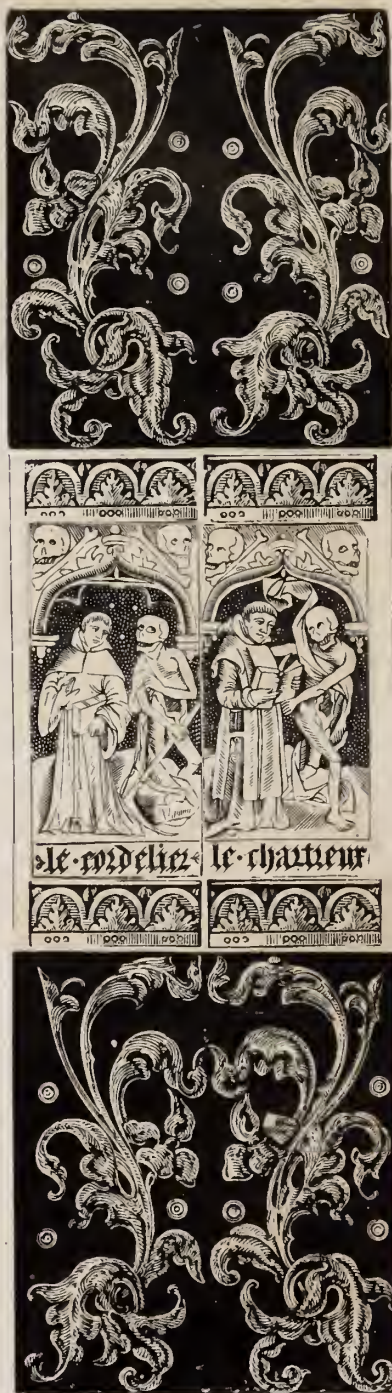 le · cordelier le · chartreux